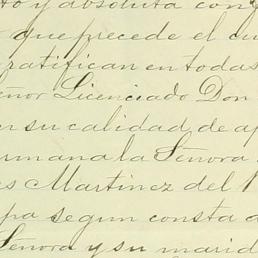 to y absoluta con
que precede el cu
ratifican en todas
eñor Licenciado Don
en su calidad de ap
rmana la Señora
es Martinez del
pa segun consta d
Señora y su marid